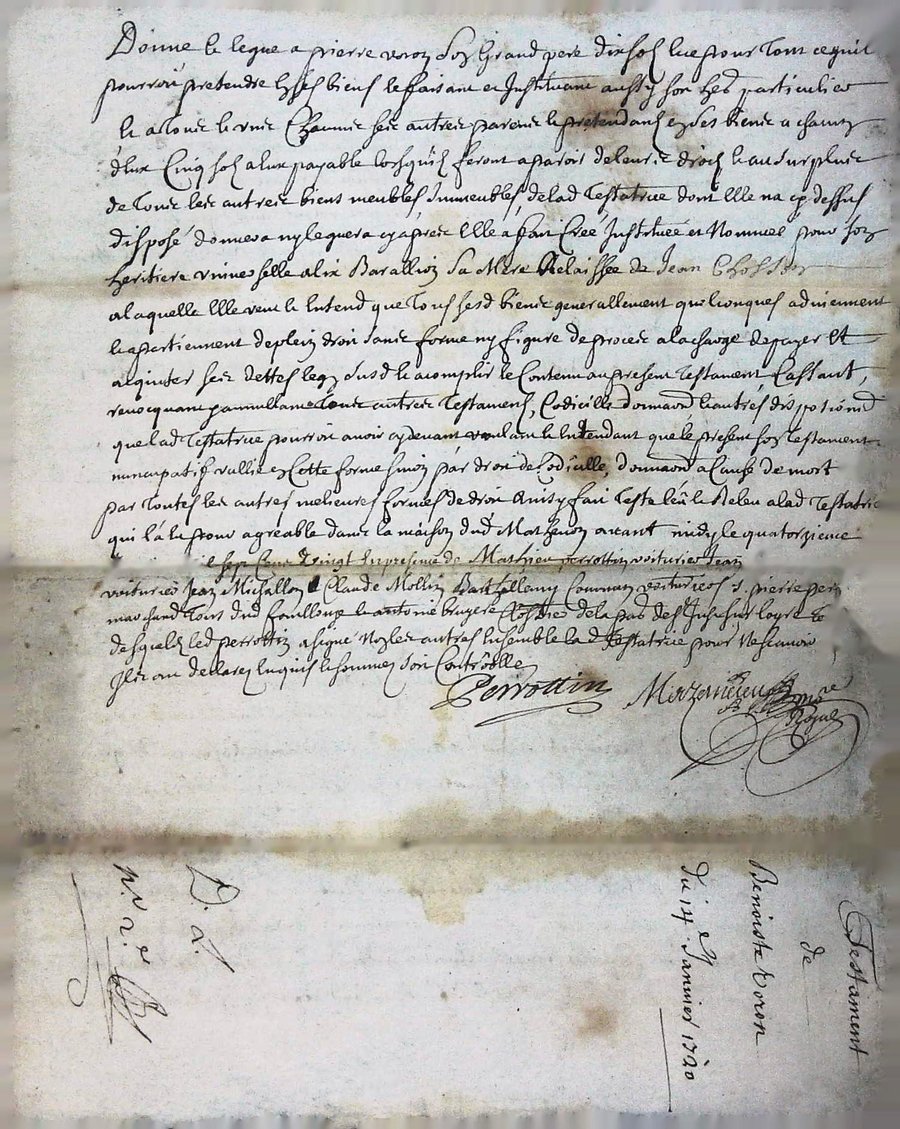 Donne et legue a pierre veron son Grand pere dix sols lae pour tout ce quil
pourroit pretendre ses biens le faisant et Instituant aussy son particulier
Et a tous et uns Chacuns ses autres parents pretendants ez des biens a chacun
d'eux Cinq sols a eux payable lorsquils feront aparoir de leurs droits et au surplus
de tous les autres biens meubles, Immeubles, de lad Testatrice dont Elle na cy dessus
disposé donnera ny leguera cy apres Elle a fait Creé Instituée et Nommée pour son
heritiere universelle alix Barallion Sa Mere Relaissée de Jean
a laquelle Elle veut et Entend que tous sesd biens generallement quelconques adviennent
et apartiennent de plein droit sans forme ny figure de proces a la charge de payer Et
aquiter ses dettes legs susd et acomplir le Contenu au present Testament Cassant,
revocquant et annullant tous autres Testaments, Codicills donnaond et autres dispositions
que lad Testatrice pourroit avoir cy devant voulant et Entendant que le present son Testament
nuncupatif vallie en Cette forme sinon par droit de Codicille, donnaond a Cause de mort
par toutes les autres melieures formes de droit Ainsy fait Teste leü et Releu a lad Testatrice
qui l'a eu pour agreable dans la maison dud Marzenon avant midy le quatorzieme
sept Cent vingt En presence de Mathieu perrottin voiturier Jean
voiturier Jean Michallon Claude Mollin Barthellemy voiturier s. pierre
marchand tous dud et antoine bruyere de la pas de st Just sur loyre
desquels led perrottin a signé Non les autres Ensemble lad Testatrice pour ne scavoir
Ils ont declarez Enquis et sommez soit Contröllé
Perrottin Marzenon
Royal
Testament
de
Benoiste Veron
du 14e Janvier 1720
D. L.
n.o 2.e